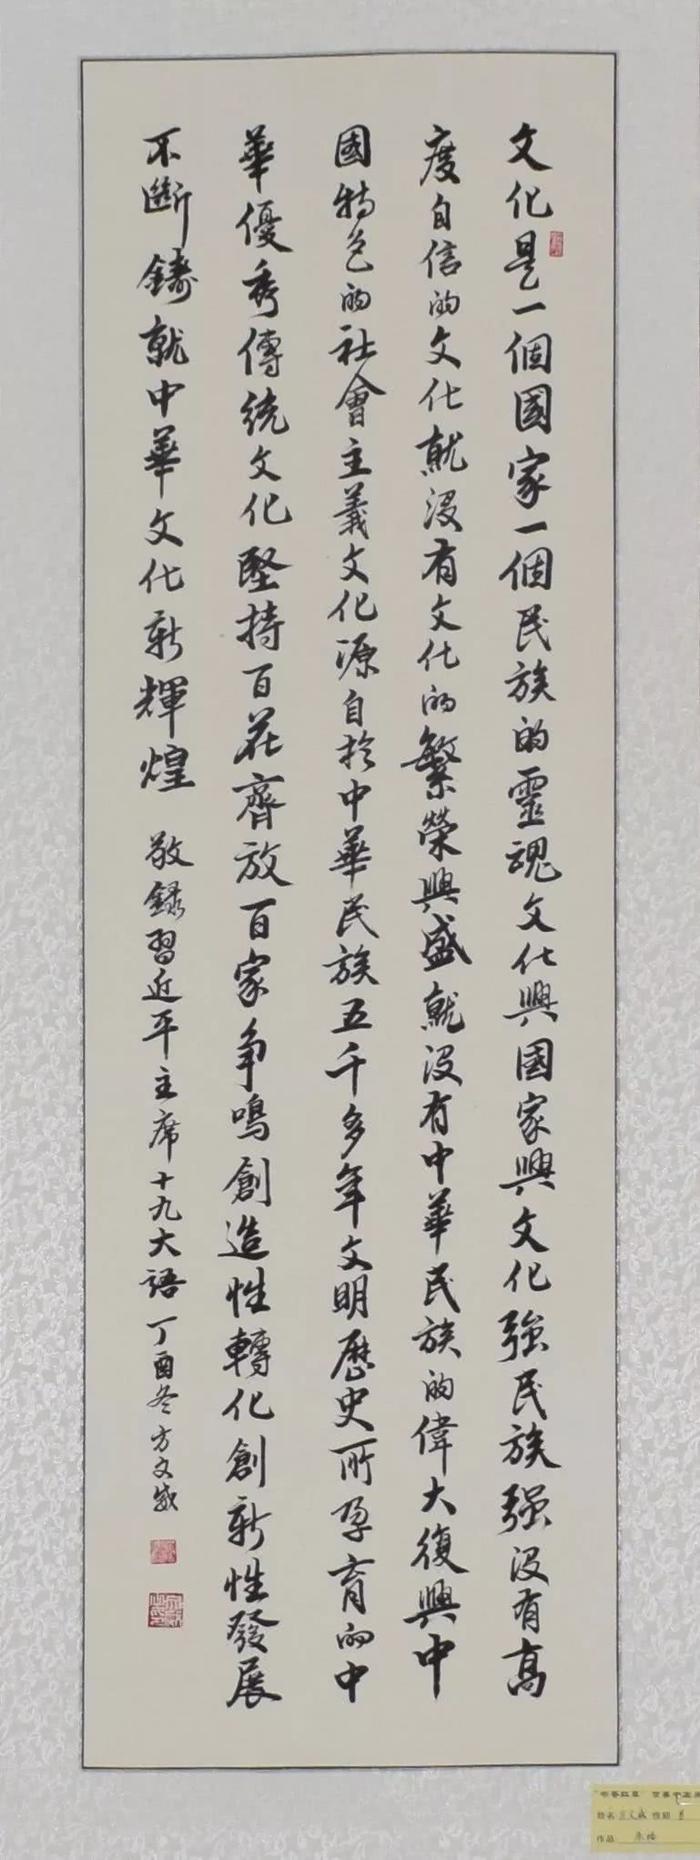 文化是一個國家一個民族的靈魂文化興國家興文化強民族强沒有高
度自信的文化就沒有文化的繁榮興盛就沒有中華民族的偉大復興中
國特色的社會主義文化源自於中華民族五千多年文明歷史所孕育的中
華優秀傳統文化堅持百花齊放百家争鳴創造性轉化創新性發展
不斷鑄就中華文化新輝煌 敬錄習近平主席十九大語 丁酉冬方文威
姓名 性别 男
作品